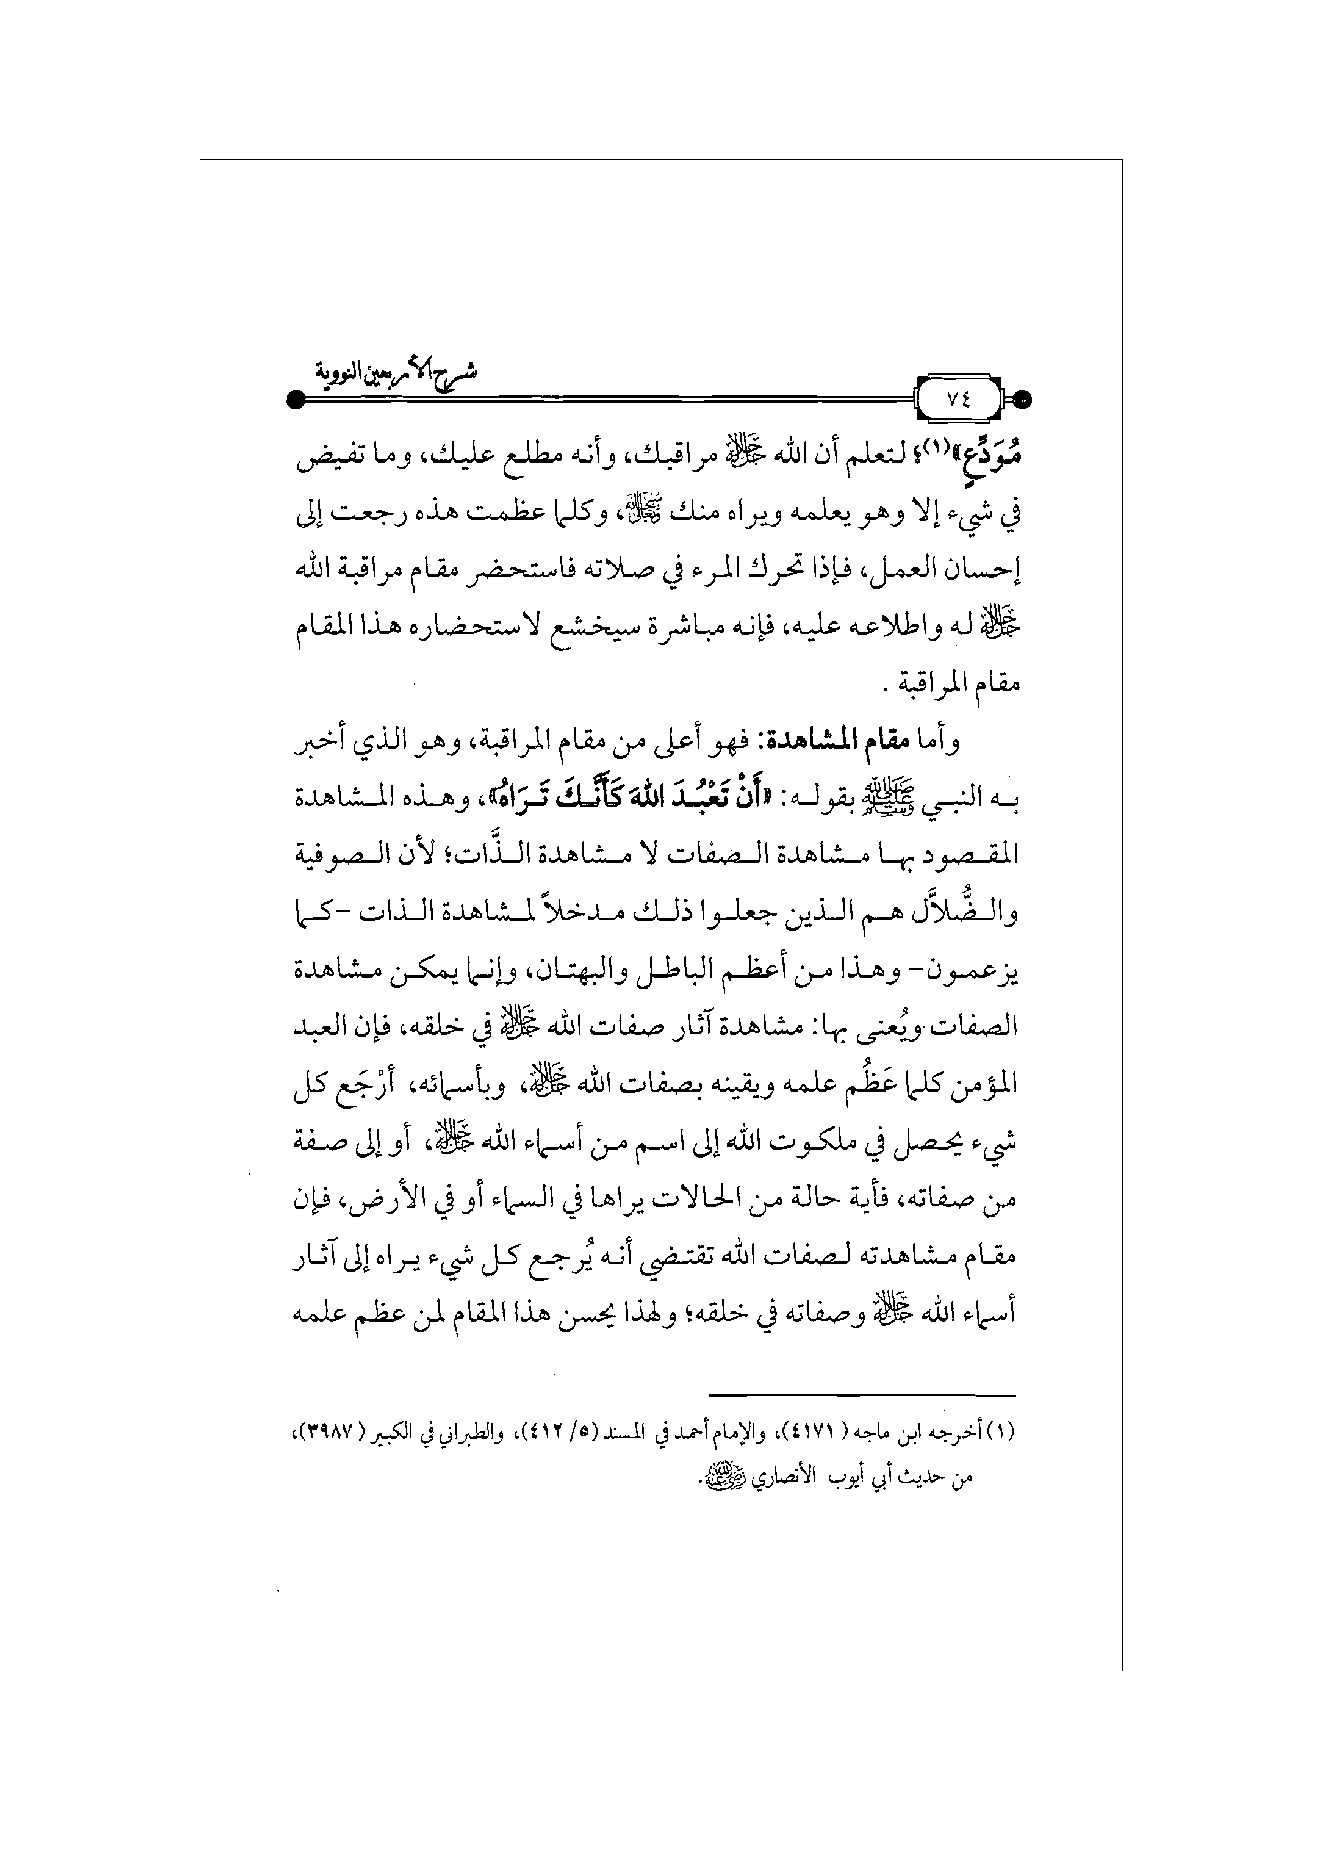 شرح الأربعين النووية
٧٤
مُوَدِّعٍ»(١)؛ لتعلم أن الله ﷻ مراقبك، وأنه مطلع عليك، وما تفيض
في شيء إلا وهو يعلمه ويراه منك ﷻ، وكلما عظمت هذه رجعت إلى
إحسان العمل، فإذا تحرك المرء في صلاته فاستحضر مقام مراقبة الله
ﷻ له واطلاعه عليه، فإنه مباشرة سيخشع لاستحضاره هذا المقام
مقام المراقبة .
وأما مقام المشاهدة: فهو أعلى من مقام المراقبة، وهو الذي أخبر
به النبي ﷺ بقوله: «أَنْ تَعْبُدَ اللهَ كَأَنَّكَ تَرَاهُ»، وهذه المشاهدة
المقصود بها مشاهدة الصفات لا مشاهدة الذَّات؛ لأن الصوفية
والضُّلاَّل هم الذين جعلوا ذلك مدخلاً لمشاهدة الذات -كما
يزعمون- وهذا من أعظم الباطل والبهتان، وإنما يمكن مشاهدة
الصفات ويُعنى بها: مشاهدة آثار صفات الله ﷻ في خلقه، فإن العبد
المؤمن كلما عَظُم علمه ويقينه بصفات الله ﷻ، وبأسمائه، أرْجَع كل
شيء يحصل في ملكوت الله إلى اسم من أسماء الله ﷻ، أو إلى صفة
من صفاته، فأية حالة من الحالات يراها في السماء أو في الأرض، فإن
مقام مشاهدته لصفات الله تقتضي أنه يُرجع كل شيء يراه إلى آثار
أسماء الله ﷻ وصفاته في خلقه؛ ولهذا يحسن هذا المقام لمن عظم علمه
(١) أخرجه ابن ماجه (٤١٧١)، والإمام أحمد في المسند (٥/ ٤١٢)، والطبراني في الكبير (٣٩٨٧)،
من حديث أبي أيوب الأنصاري رضي الله عنه.